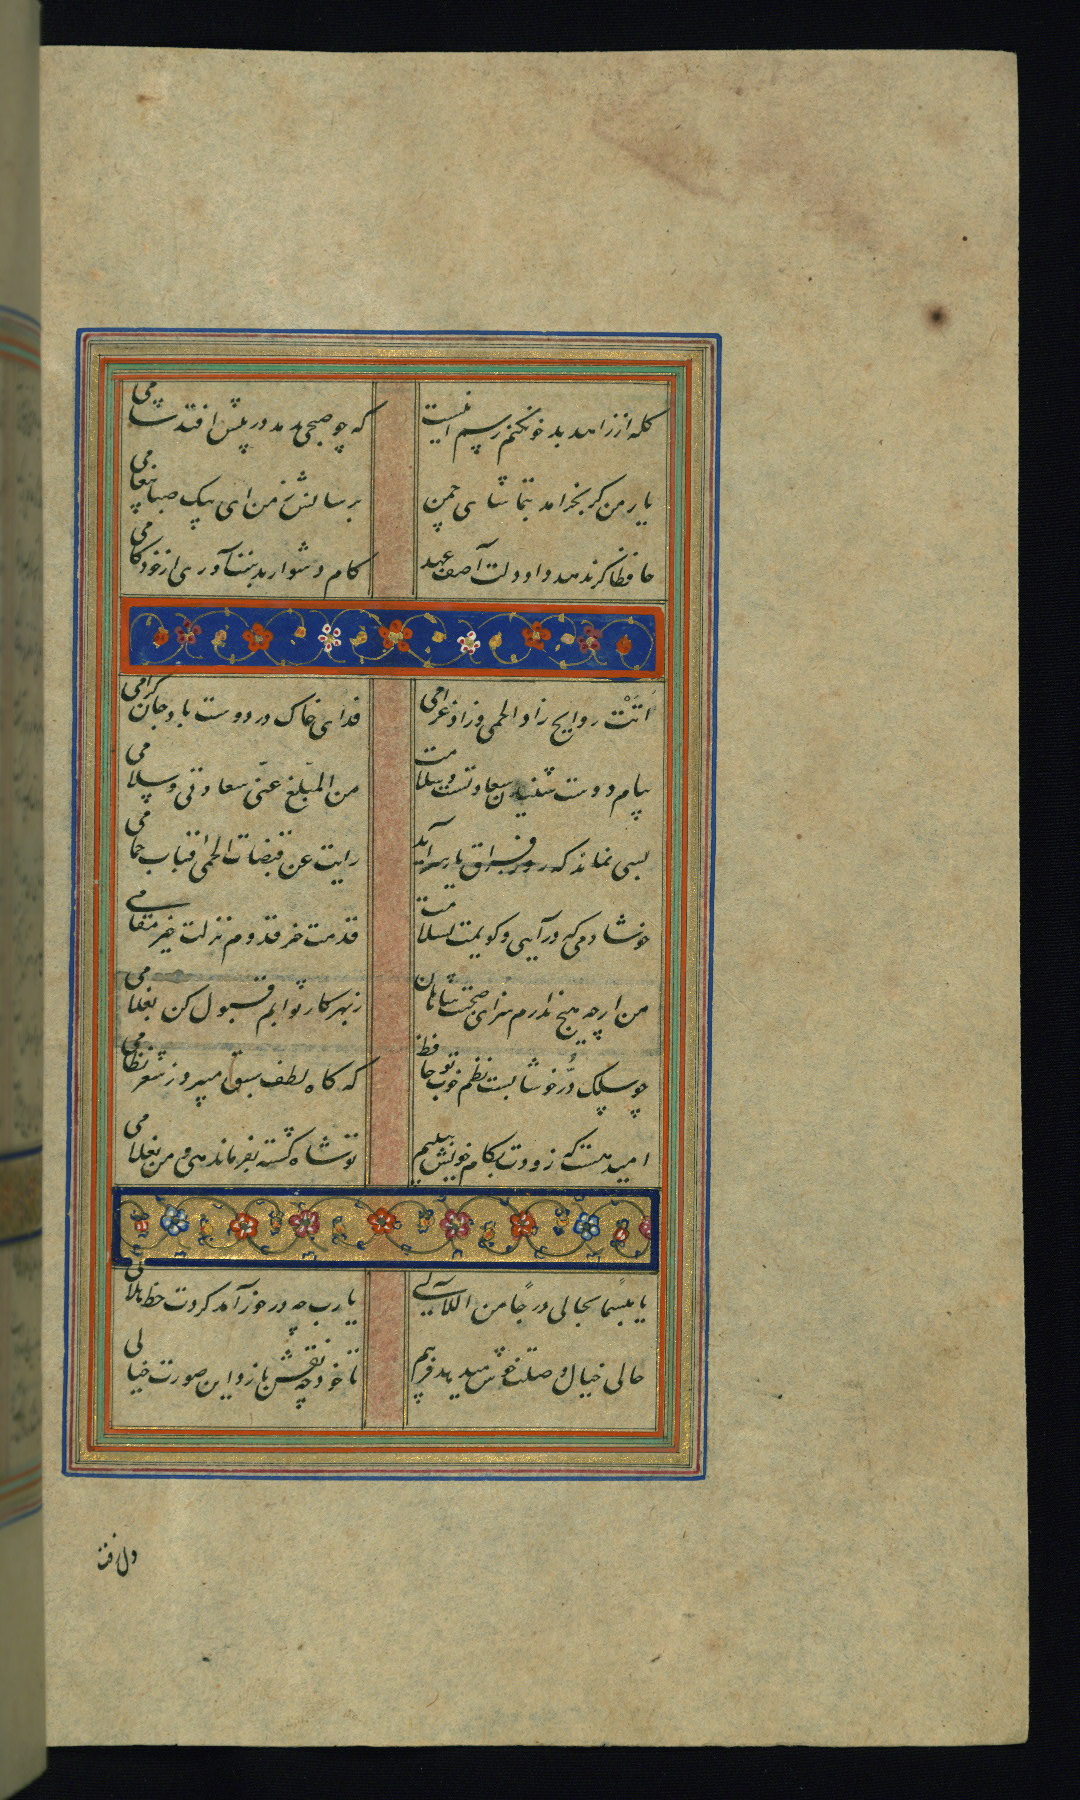 گله از زاهد بدخو نکنم رسم اینست که چو صبحی بدمد در پیش افتد شامی
یار من گر بخرامد بتماشای چمن برسانش ز من ای پیک صبا پیغامی
حافظا گر ندهد داد دلت آصف عهد کام دشوار بدست آوری از خودکامی
اَتَتْ روایح رند الحمی و زاد غرامی فدای خاک در دوست باد جان گرامی
پیام دوست شنیدن سعادتست و سلامت من المبلّغ عنّی سعادتی و سلامی
بسی نماند که روز فراق یار سر آید رایت عن قبضات الحمی قباب خیامی
خوشا دمی که درآیی و گویمت بسلامت قدمت خیر قدوم نزلت خیر مقامی
من ارچه هیچ ندارم سزای صحبت شاهان ز بهر کار ثوابم قبول کن بغلامی
چو سلک دُرّ خوشابست نظم خوب تو حافظ که گاه لطف سبق میبرد ز شعر نظامی
امید هست که زودت بکام خویش ببینم تو شاه گشته بفرماندهی و من بغلامی
یا مبسما یحاکی درجًا من اللآلی یا رب چه در خور آمد گردت خط هلالی
حالی خیال وصلت خوش میدهد فریبم تا خود چه نقش بازد این صورت خیالی
دل رفت